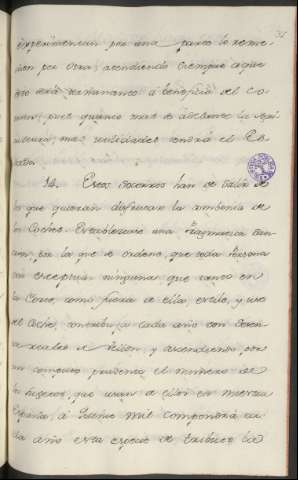 experimentan por una parte lo reme-
dien por otra; atendiendo siempre a que
esto será redundante á beneficio del Co-
mun, pues quanto mas se adelante la Agri
cultura, mas utilidades tendrá el Es-
tado.
14. Estos socorros han de salir de
los que quieran disfrutar la ambonia de
los Coches. Estableciendo una Pragmatica San-
cion por la que se ordene, que toda Persona
sin excepcion ninguna que tanto en
la Corte, como fuera de ella, estile, y use
el coche, contribuya cada año con
reales de Vellon, y ascendiendo por
un computo prudente el numero de
los sugetos, que usan de ellos en nuestra
España, á mil compondrá ca-
da año esta especie de tributo la